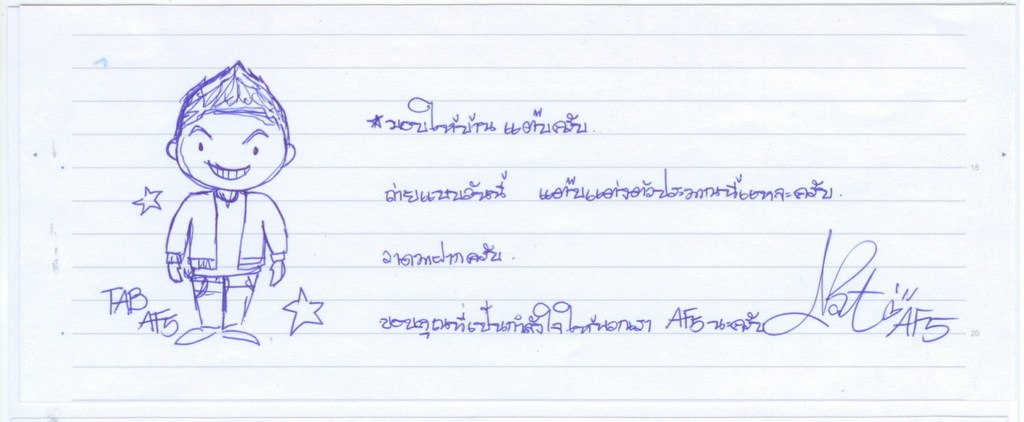 ★มอบให้บ้าน แต๊บครับ.
ถ่ายแบบวันนี้ แต๊บแต่งตัวประมาณนี้แหละครับ.
วาดมาฝากครับ.
ขอบคุณที่เป็นกำลังใจให้พวกเรา AF5 นะครับ
TAB
AF5
Nat AF5
15
20